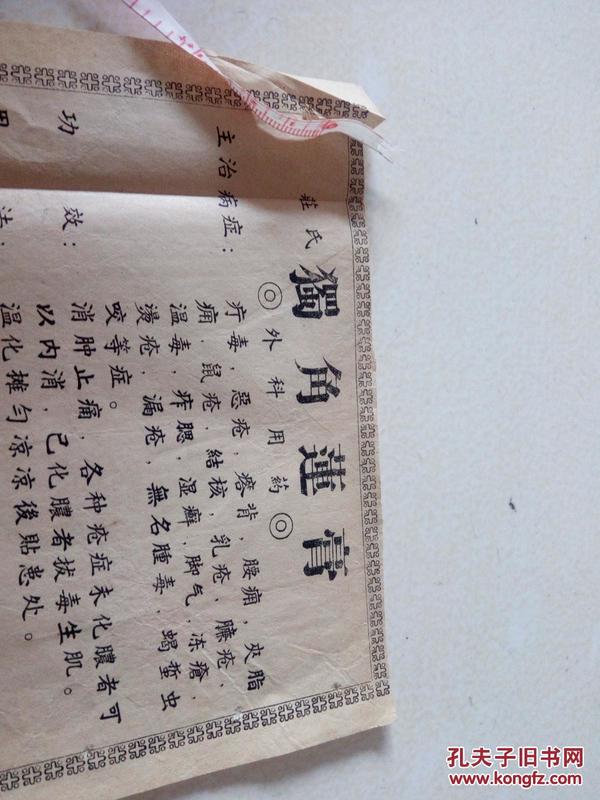 莊氏 獨角蓮膏
◎外科用药◎
主治病症：疔毒，惡疮，瘩背，腰痈，夾脂
痈，鼠疮，結核，乳疮，臁疮，
温毒，痄腮，湿癣，脚气，冻瘡，
燙疮，漏疮，無名腫毒，蝎蜇虫
咬等症。
功效：消肿止痛，各种疮症未化膿者可
以内消，已化膿者拔毒生肌。
用法：温化摊匀凉凉後貼患处。
孔夫子旧书网
www.kongfz.com